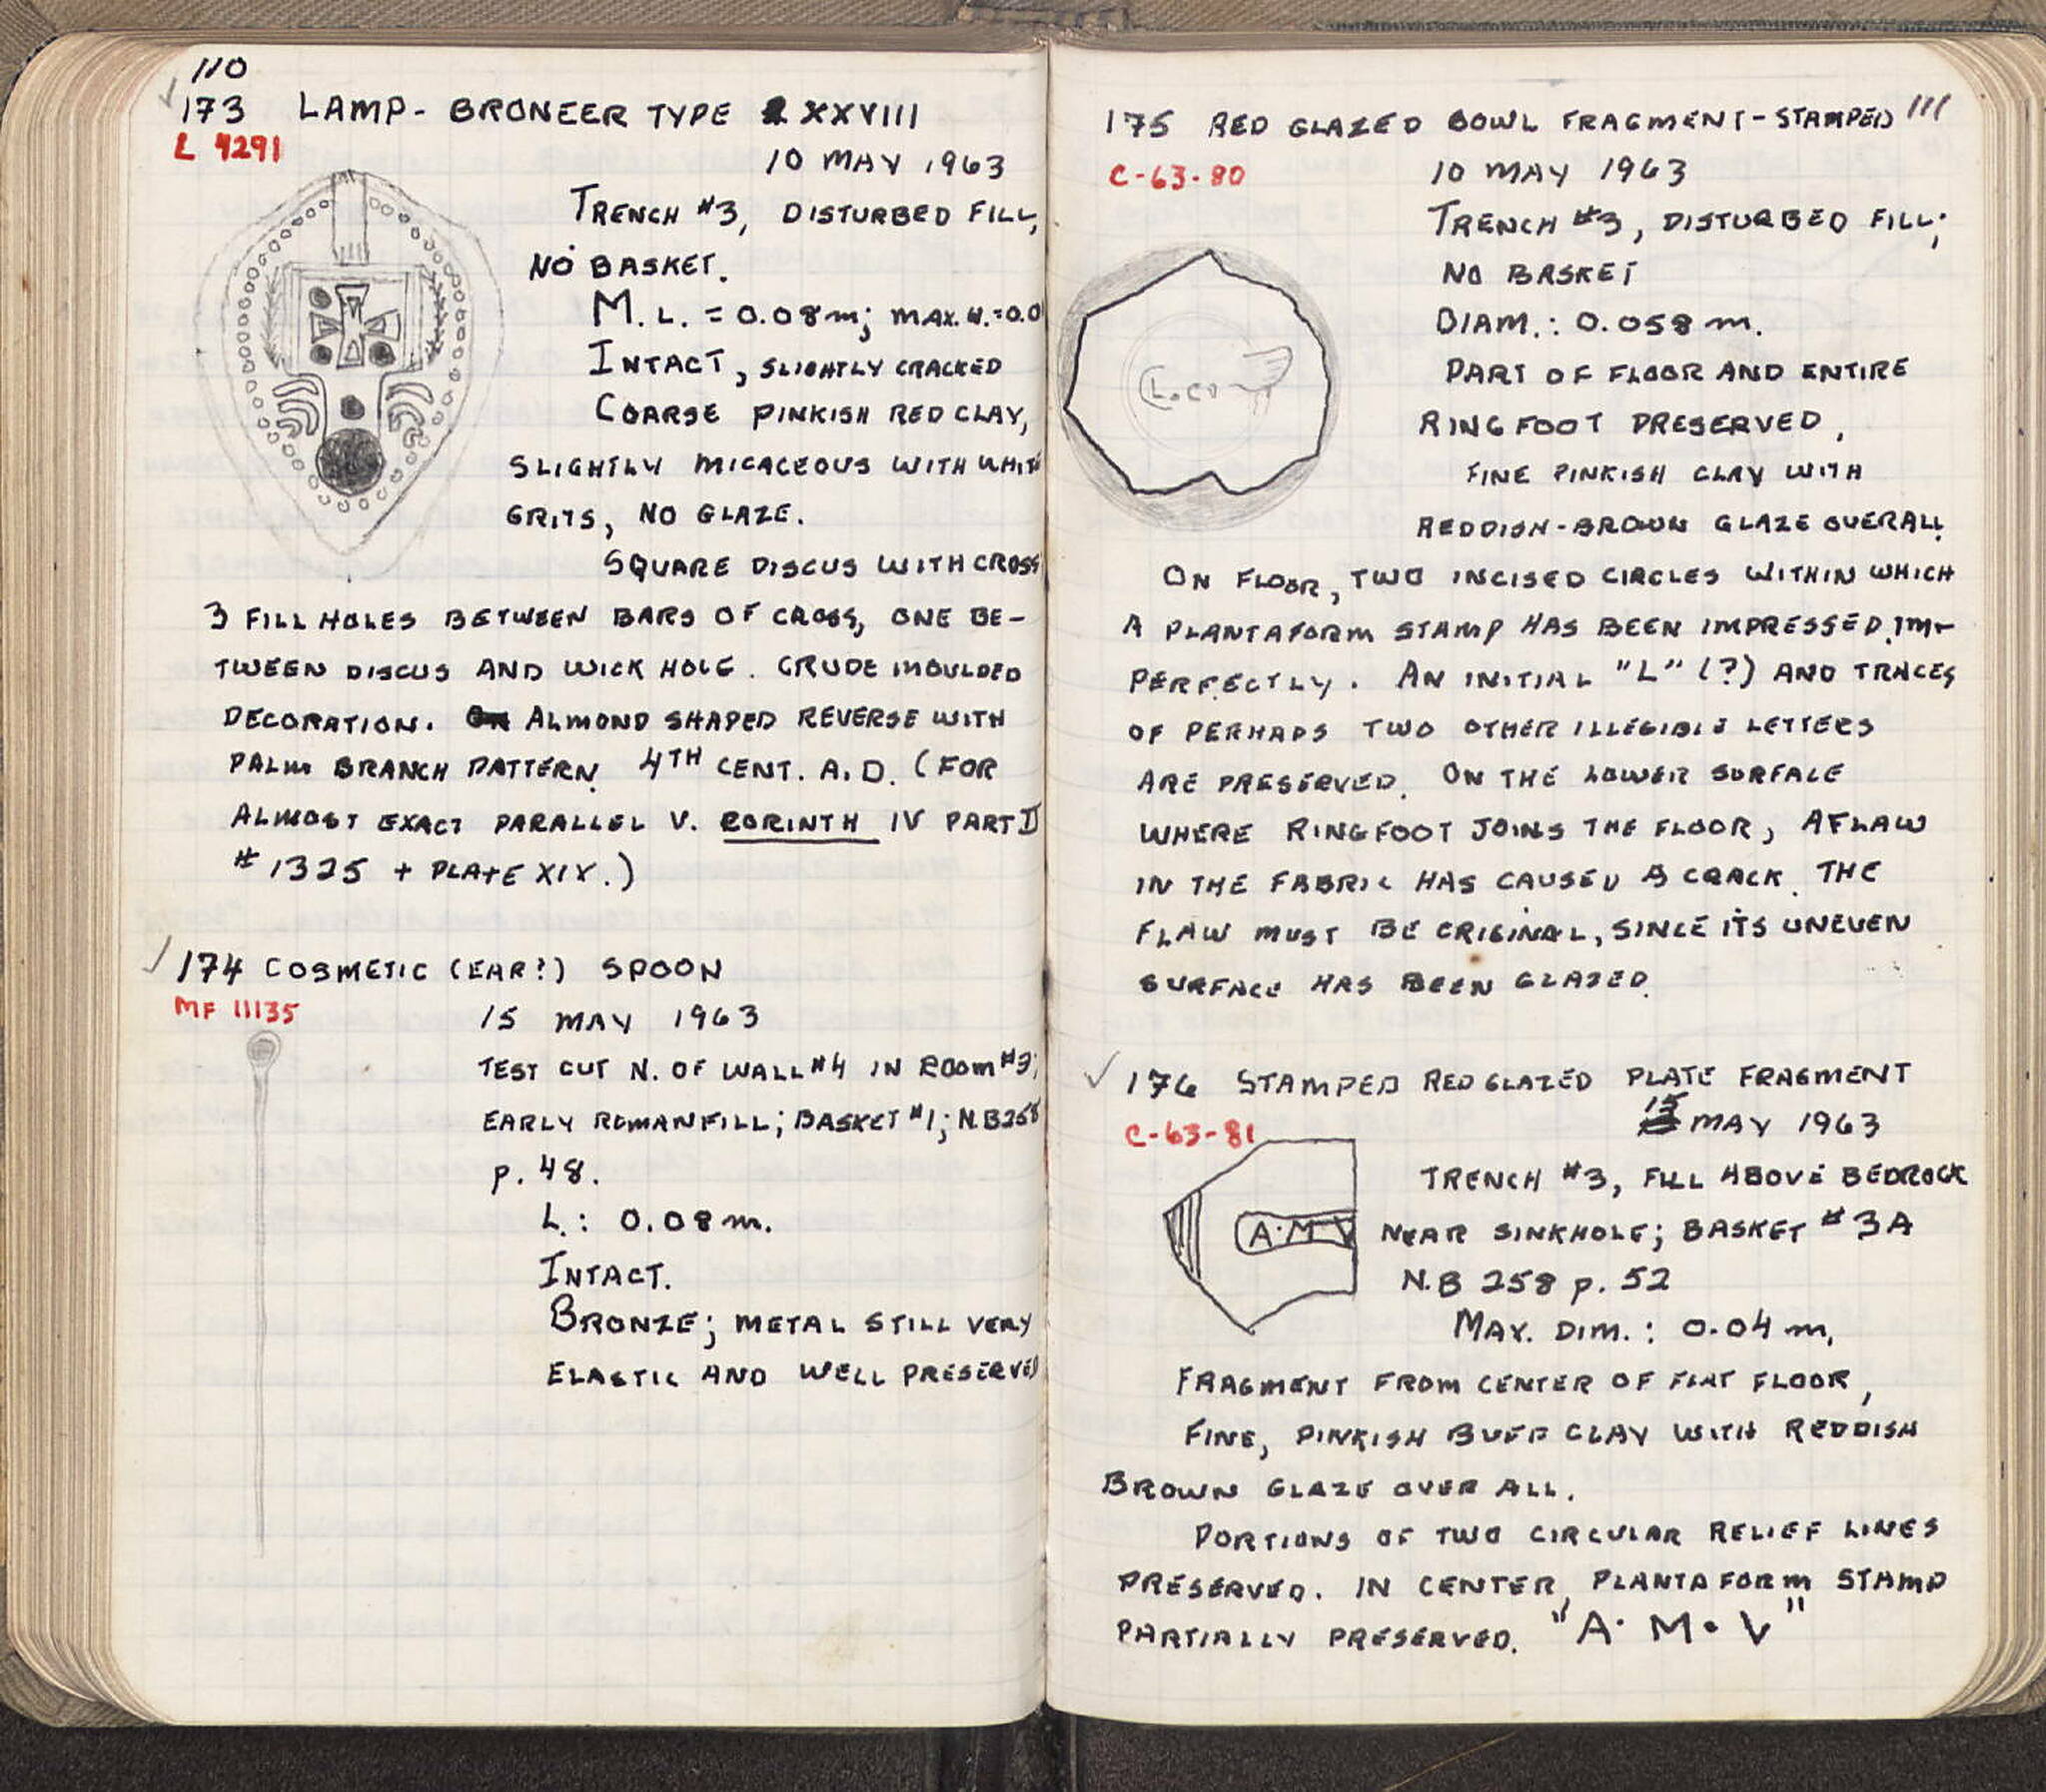 110
173 LAMP- BRONEER TYPE XXVIII
L 4291
10 MAY 1963
TRENCH #3, DISTURBED FILL,
NO BASKET.
M. L. = 0.08m; MAX. W. = 0.0
INTACT, SLIGHTLY CRACKED
COARSE PINKISH RED CLAY,
SLIGHTLY MICACEOUS WITH WHITE
GRITS, NO GLAZE.
SQUARE DISCUS WITH CROSS
3 FILL HOLES BETWEEN BARS OF CROSS, ONE BE-
TWEEN DISCUS AND WICK HOLE. CRUDE MOULDED
DECORATION. ALMOND SHAPED REVERSE WITH
PALM BRANCH PATTERN. 4TH CENT. A.D. (FOR
ALMOST EXACT PARALLEL V. CORINTH IV PART II
# 1325 + PLATE XIX.)
174 COSMETIC (EAR?) SPOON
MF 11135
15 MAY 1963
TEST CUT N. OF WALL #4 IN ROOM #3;
EARLY ROMAN FILL; BASKET #1; N.B 258
p. 48.
L.: 0.08m.
INTACT.
BRONZE; METAL STILL VERY
ELASTIC AND WELL PRESERVED
111
175 RED GLAZED BOWL FRAGMENT-STAMPED
C-63-80
10 MAY 1963
TRENCH #3, DISTURBED FILL;
NO BASKET
DIAM.: 0.058 m.
PART OF FLOOR AND ENTIRE
RING FOOT PRESERVED,
FINE PINKISH CLAY WITH
REDDISH-BROWN GLAZE OVERALL.
ON FLOOR, TWO INCISED CIRCLES WITHIN WHICH
A PLANTAFORM STAMP HAS BEEN IMPRESSED IM-
PERFECTLY. AN INITIAL "L" (?) AND TRACES
OF PERHAPS TWO OTHER ILLEGIBLE LETTERS
ARE PRESERVED. ON THE LOWER SURFACE
WHERE RINGFOOT JOINS THE FLOOR, A FLAW
IN THE FABRIC HAS CAUSED A CRACK. THE
FLAW MUST BE ORIGINAL, SINCE ITS UNEVEN
SURFACE HAS BEEN GLAZED.
176 STAMPED RED GLAZED PLATE FRAGMENT
15 MAY 1963
C-63-81
TRENCH #3, FILL ABOVE BEDROCK
A·M·V
NEAR SINKHOLE; BASKET # 3A
N.B 258 p. 52
MAX. DIM.: 0.04 m.
FRAGMENT FROM CENTER OF FLAT FLOOR,
FINE, PINKISH BUFF CLAY WITH REDDISH
BROWN GLAZE OVER ALL.
PORTIONS OF TWO CIRCULAR RELIEF LINES
PRESERVED. IN CENTER, PLANTAFORM STAMP
PARTIALLY PRESERVED. "A· M· V"